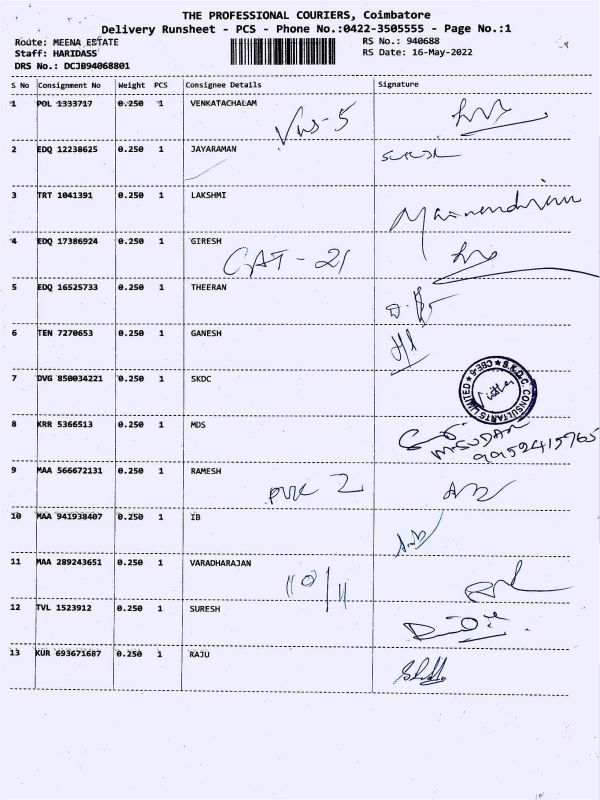 THE PROFESSIONAL COURIERS, Coimbatore
Delivery Runsheet - PCS - Phone No.:0422-3505555 - Page No.:1
Route: MEENA ESTATE
Staff: HARIDASS
DRS No.: DCJB94068801
RS No.: 940688
RS Date: 16-May-2022
S No Consignment No Weight PCS Consignee Details Signature
1 POL 1333717 0.250 1 VENKATACHALAM
2 EDQ 12238625 0.250 1 JAYARAMAN
3 TRT 1041391 0.250 1 LAKSHMI
4 EDQ 17386924 0.250 1 GIRESH
CAT - 21
5 EDQ 16525733 0.250 1 THEERAN
6 TEN 7270653 0.250 1 GANESH
7 DVG 850034221 0.250 1 SKDC
S.K.D.C. CONSULTANTS LIMITED CBE-6
8 KRR 5366513 0.250 1 MDS
M.SUDAR
9 MAA 566672131 0.250 1 RAMESH
10 MAA 941938407 0.250 1 IB
11 MAA 289243651 0.250 1 VARADHARAJAN
12 TVL 1523912 0.250 1 SURESH
13 KUR 693671687 0.250 1 RAJU